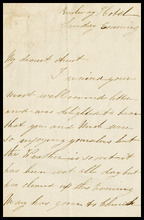 Sunday Evening
My dearest Aunt.
I received your
most welcome letter
and was delighted to hear
that you and Uncle were
so enjoying yourselves but
the Weather is so wet it
has been wet all day but
has cleared up this Evening
Mary has gone to Church